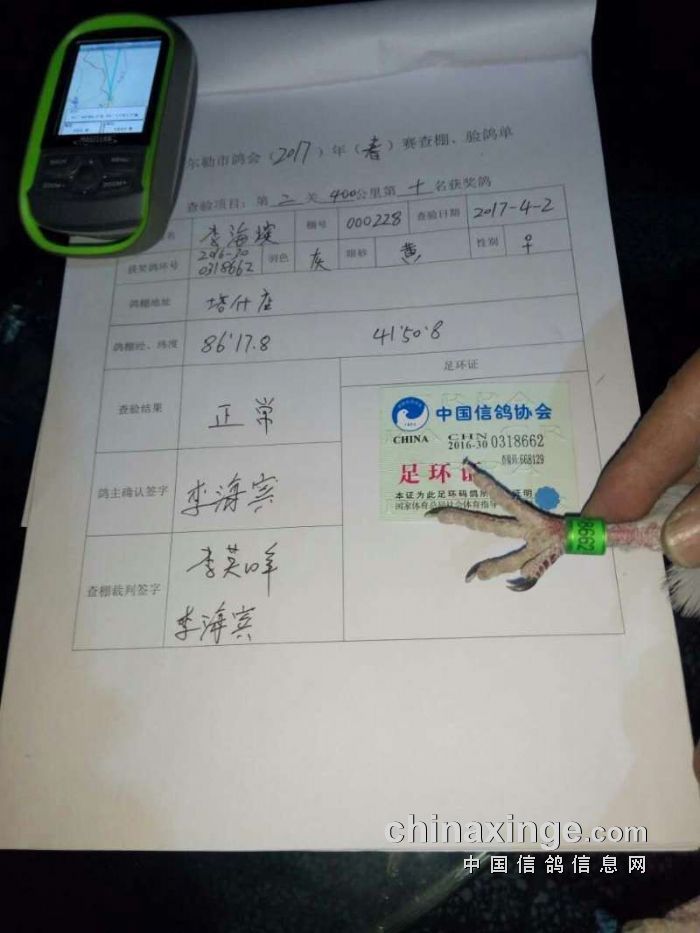 尔勒市鸽会（2017）年（春）赛查棚、脸鸽单
查验项目：第 二 关 400公里第 十 名获奖鸽
名 李海滨 棚号 000228 查验日期 2017-4-2
获奖鸽环号 2016-30 0318662 羽色 灰 眼砂 黄 性别 ♀
鸽棚地址 塔什店
鸽棚经、纬度 86°17.8 41°50.8
足环证
查验结果 正常
中国信鸽协会
CHINA CHN 2016-30 0318662
668129
足环证
本证为此足环码鸽 证明
国家体育总局社会体育指导
鸽主确认签字 李海宾
8662
查棚裁判签字 李英
李海宾
BACK MENU
ZOOM- ZOOM+
chinaxinge.com
中国信鸽信息网